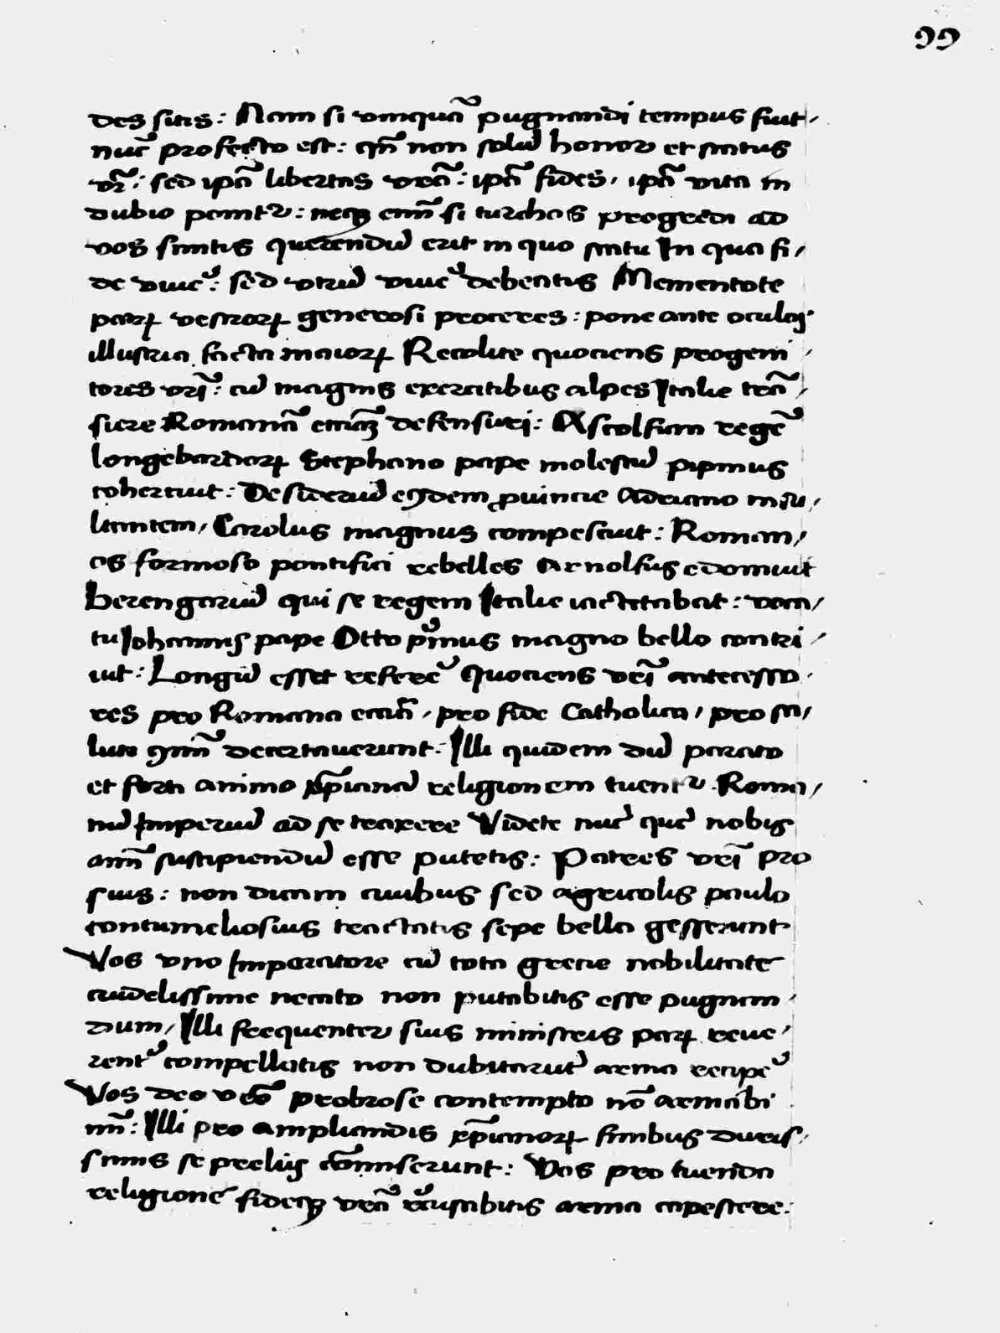 99
des sitis: Nam si vnquā pugnandi tempus fuit,
nūc profecto est: qn̄ non solū honor et status
vr̄: sed ipā libertas vrā: ipā fides, ipā vita in
dubio ponitr: neqȝ enī si turchos progredi ad
vos sinitis querendū erit in quo statu In qua fi,
de viuē: sed vtrū viuē debeatis Mementote
patꝝ vestroꝝ generosi proceres: pone ante oculos
illustria facta maioꝝ Recolite quociens progeni,
tores vrī: cū magnis exercitibus alpes Italie trā,
siere Romanā ecciaȝ defensuri: Astolfum regē
longobardoꝝ Stephano pape molestū pipinus
cohercuit: Desideriū eꝯdem ꝓuincie Adriano insu,
ltantem, Carolus magnus compescuit: Roman,
os formoso pontifici rebelles Arnolfus edomuit
berengariū qui se regem Italie iactitabat: voca,
tu Iohannis pape Otto pimus magno bello contri,
uit: Longū esset referē Quociens vrī antecesso,
res pro Romana eccā, pro fide Catholica, pro sa,
lute ꝯmī decertauerunt: Illi quidem dū parato
et forti animo xp̄ianā religionem tuentr Roma,
nū Imperiū ad se traxere Videte nūc quē nobis
animū suscipiendū esse putetis: Patres vrī pro
suis: non dicam ciuibus sed agricolis paulo
contumeliosius tractatis sepe bella gesserunt
Vos vno Imperatore cū tota grecie nobilitate
crudelissime necato non putabitis esse pugnan,
dum, Illi frequenter suis ministris paꝝ reue,
rentē compellatis non dubitarūt arma recipē
Vos deo vrō probrose contempto nō armabi
mī: Illi pro ampliandis xp̄ianoꝝ finibus duris,
simis se prelijs cōmiserunt: Vos pro tuenda
religione fideqȝ vrā recusabitis arma capescere: